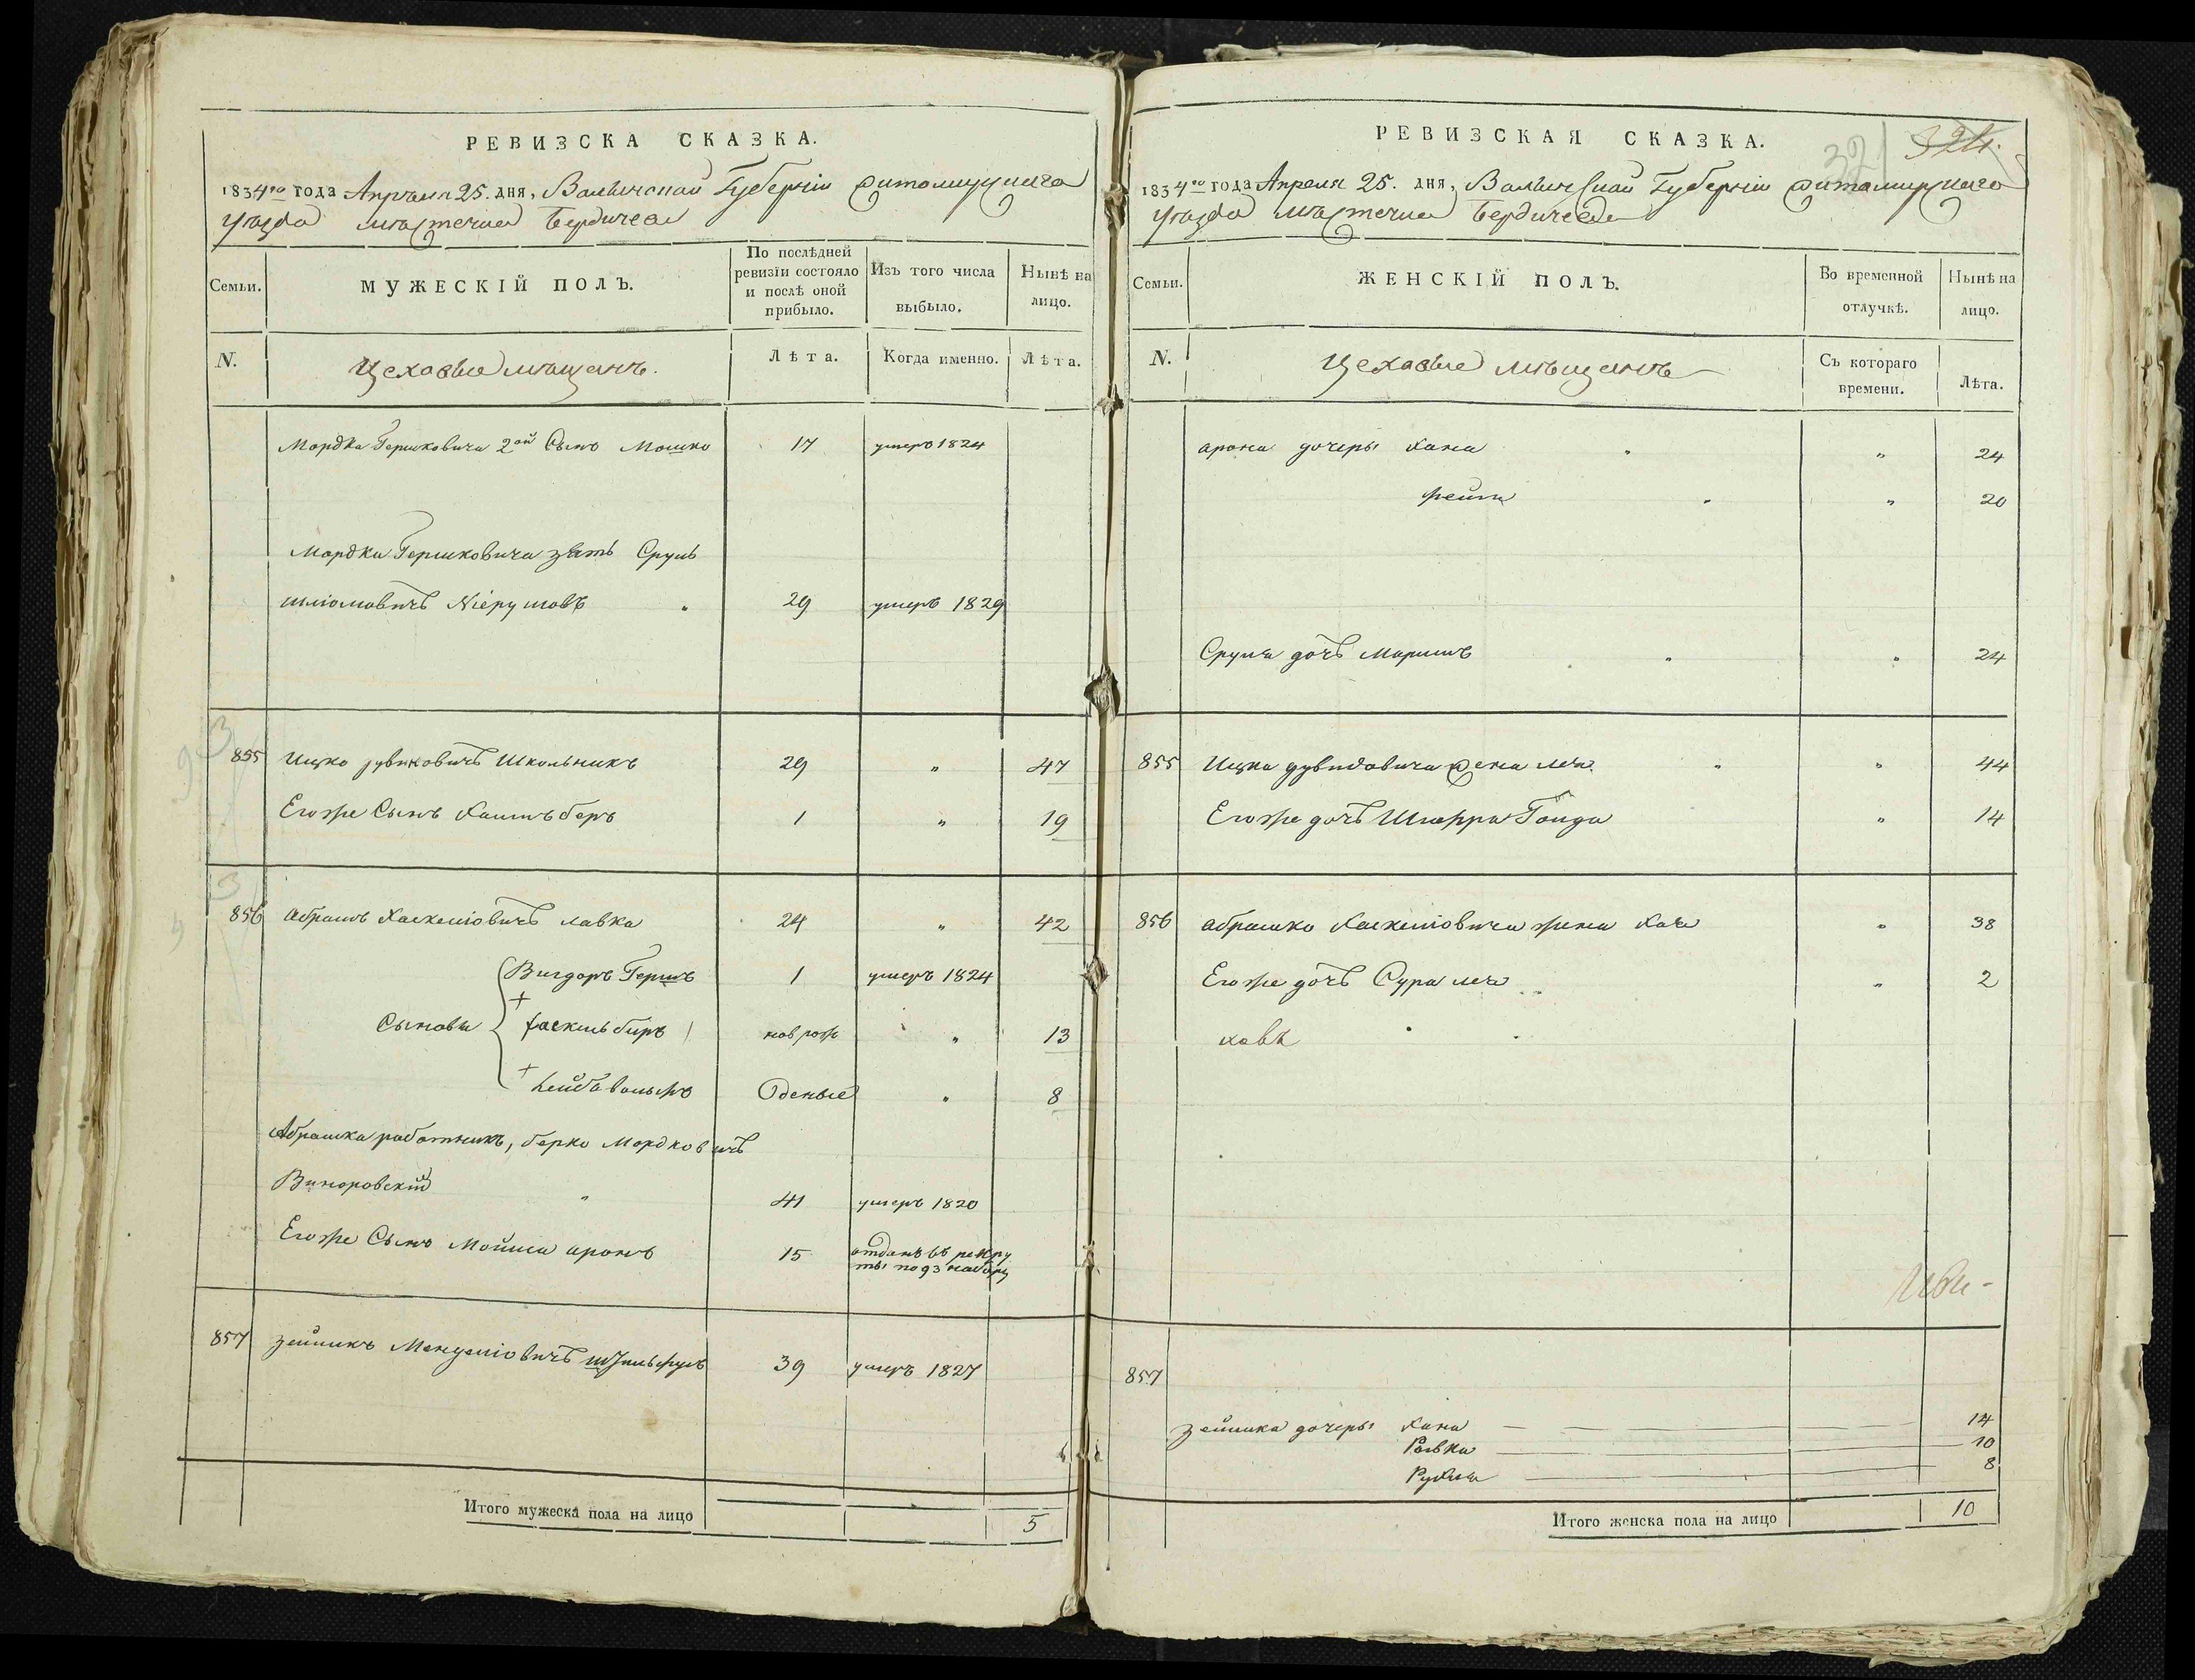 РЕВИЗСКА СКАЗКА.
1834го года Апреля 25. дня, Волынской Губернии Житомирскаго
уезда местечка Бердичева
Семьи.
МУЖЕСКІЙ ПОЛЪ.
По послѣдней ревизіи состояло и послѣ оной прибыло.
Изъ того числа выбыло.
Нынѣ на лицо.
N.
Цеховые мѣщанъ.
Лѣта.
Когда именно.
Лѣта.
Мордка Гершковича 2ой Сынъ Мошко 17 умеръ 1824
Мордки Гершковича зять Сруль
Шліомовичъ 29 умеръ 1829
855 Ицко Школьникъ 29 " 47
Егоже Сынъ Хаимъ беръ 1 " 19
856 Абрамъ Хаскеліовичъ лавка 24 " 42
Вигдоръ Гершъ 1 умеръ 1824
Сыновья Хаскель беръ нов рож " 13
Лейба вольфъ Оденые " 8
Абрашка работникъ, берко Мордковичъ
41 умеръ 1820
Егоже Сынъ Мойша аронъ 15 отданъ въ рекру
ты по 93 набору
857 зейликъ Менделіовичъ 39 умеръ 1827
Итого мужеска пола на лицо 5
РЕВИЗСКАЯ СКАЗКА.
321 324.
1834го года Апреля 25. дня, Волынской Губерніи Житомирскаго
уезда местечка Бердичева
Семьи.
ЖЕНСКІЙ ПОЛЪ.
Во временной отлучкѣ.
Нынѣ на лицо.
N.
Цеховые мѣщанъ
Съ котораго времени.
Лѣта.
арона дочеры Хана " " 24
фейга " " 20
Сруля дочъ Маримъ " " 24
855 Ицка дувидовича жена лея " " 44
Егоже дочъ Шифра Гольда " 14
856 абрашко Хаскеліовича жена Хая " 38
Егоже дочъ Сура лея " 2
857
зейлика дочеры Хана 14
Ривка 10
Рухля 8
Итого женска пола на лицо 10